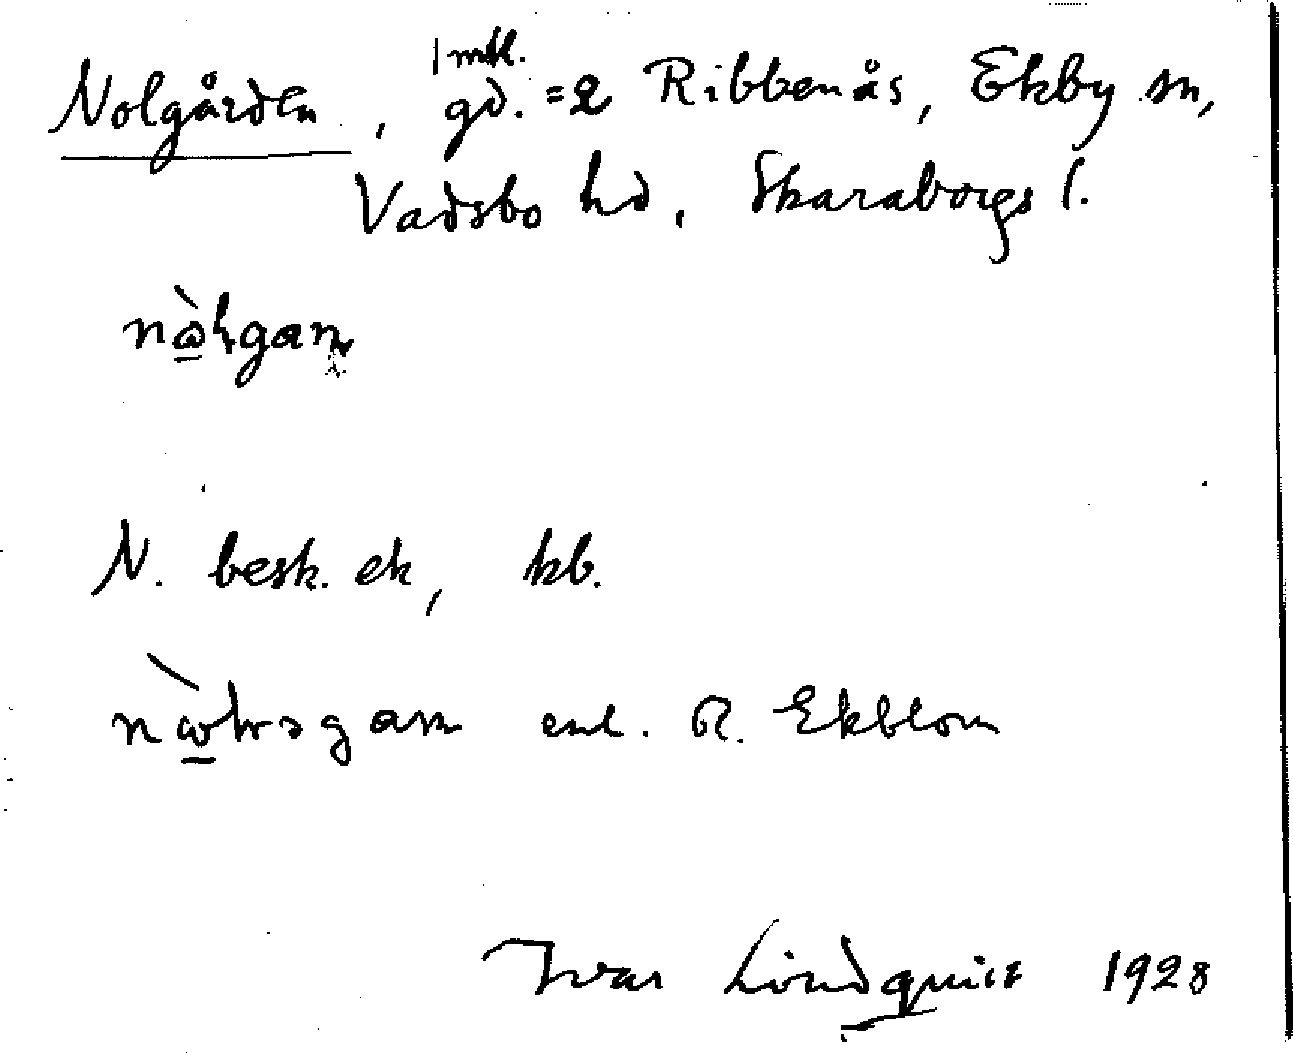 Nolgården, 1 mtl. gd. =2 Ribbenås, Ekby sn,
Vadsbo hd, Skaraborgs l.
N. besk. ek, kb.
enl. R. Ekblom
Ivar Lindquist 1928